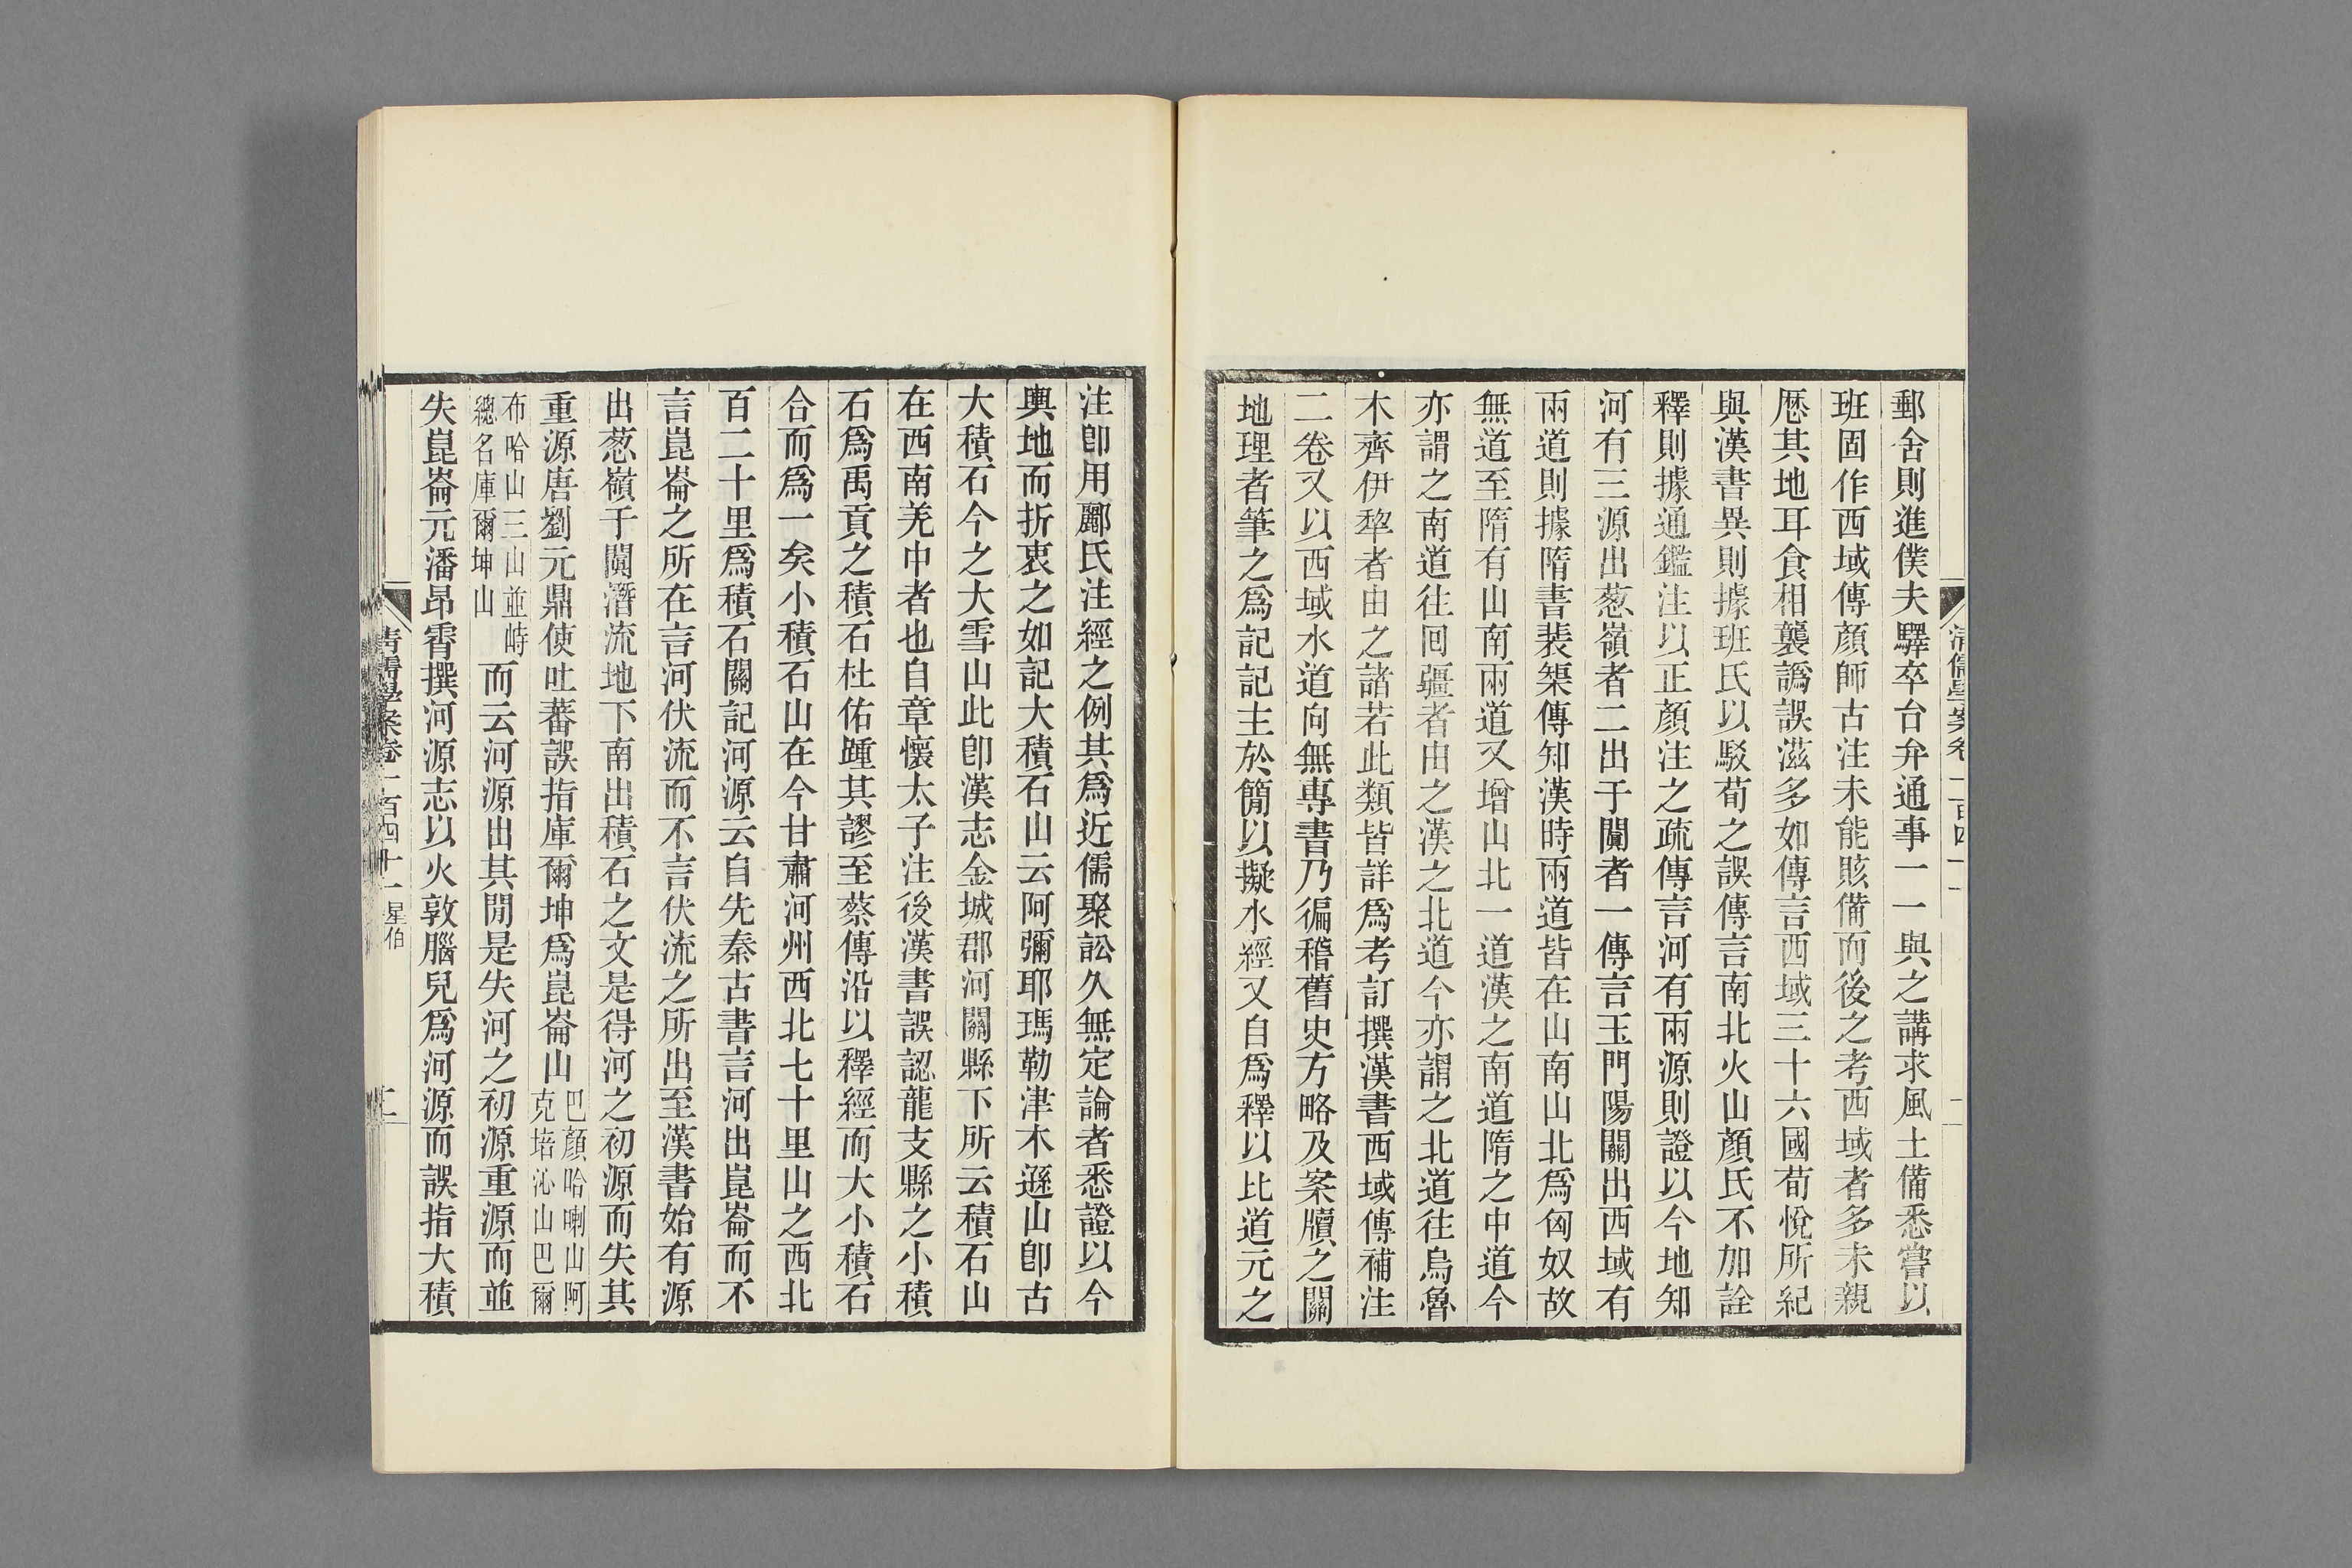 郵舍則進僕夫驛卒台弁通事一一與之講求風土備悉嘗以
班固作西域傳顏師古注未能賅備而後之考西域者多未親
歷其地耳食相襲譌誤滋多如傳言西域三十六國荀悅所紀
與漢書異則據班氏以駁荀之誤傳言南北火山顏氏不加詮
釋則據通鑑注以正顏注之疏傳言河有兩源則證以今地知
河有三源出葱嶺者二出于闐者一傳言玉門陽關出西域有
兩道則據隋書裴榘傳知漢時兩道皆在山南山北爲匈奴故
無道至隋有山南兩道又增山北一道漢之南道隋之中道今
亦謂之南道往回疆者由之漢之北道今亦謂之北道往烏魯
木齊伊犂者由之諸若此類皆詳爲考訂撰漢書西域傳補注
二卷又以西域水道向無專書乃徧稽舊史方略及案牘之關
地理者筆之爲記記主於簡以擬水經又自爲釋以比道元之
注卽用酈氏注經之例其爲近儒聚訟久無定論者悉證以今
輿地而折衷之如記大積石山云阿彌耶瑪勒津木遜山卽古
大積石今之大雪山此卽漢志金城郡河關縣下所云積石山
在西南羌中者也自章懷太子注後漢書誤認龍支縣之小積
石爲禹貢之積石杜佑踵其謬至蔡傳沿以釋經而大小積石
合而爲一矣小積石山在今甘肅河州西北七十里山之西北
百二十里爲積石關記河源云自先秦古書言河出崑崙而不
言崑崙之所在言河伏流而不言伏流之所出至漢書始有源
出葱嶺于闐潛流地下南出積石之文是得河之初源而失其
重源唐劉元鼎使吐蕃誤指庫爾坤爲崑崙山巴顏哈喇山阿克塔沁山巴爾
布哈山三山並峙總名庫爾坤山而云河源出其閒是失河之初源重源而並
失崑崙元潘昂霄撰河源志以火敦腦兒爲河源而誤指大積
清儒學案卷一百四十一 星伯 二